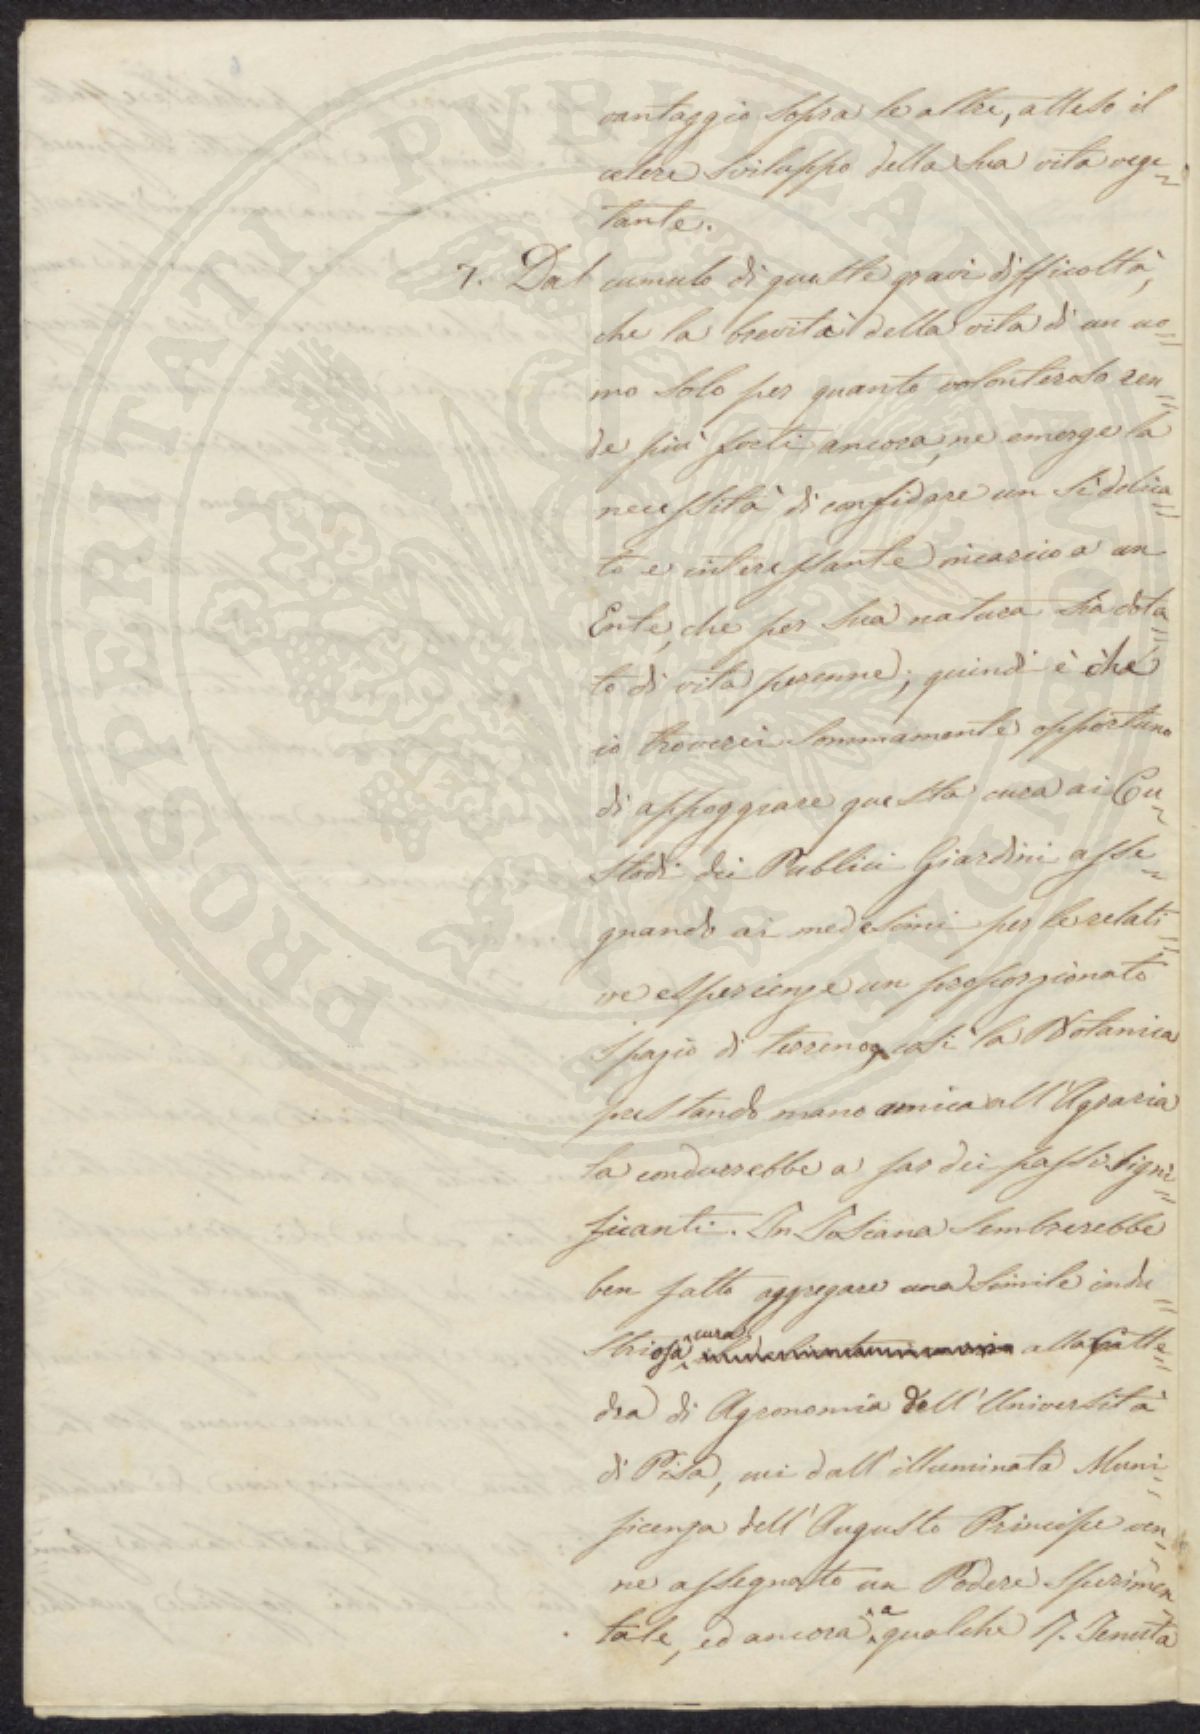 vantaggio sopra le altre, atteso il
celere sviluppo della sua vita vege=
tante.
7. Dal cumulo di queste gravi difficoltà,
che la brevità della vita di un uo=
mo solo per quanto volonteroso ren=
de più forti ancora, ne emerge la
necessità di confidare un sì delica=
to e interessante incarico a un
Ente, che per sua natura sia dota=
to di vita perenne; quindi è che
io troverei sommamente opportuno
di appoggiare questa cura ai Cu=
stodi dei Publici Giardini asse=
gnando ai medesimi per le relati=
ve esperienze un proporzionato
spazio di terreno, così la Botanica
prestando mano amica all'Agraria
la condurrebbe a far dei passi signi=
ficanti. In Toscana sembrerebbe
ben fatto aggregare una simile indu=
striosa cura alla Catte=
dra di Agronomia dell'Università
di Pisa, cui dall'illuminata Muni=
ficenza dell'Augusto Principe ven=
ne assegnato un Podere sperimen=
tale, ed ancora a qualche I. Tenuta
PROSPERITATI PVBLICAE AVGENDAE